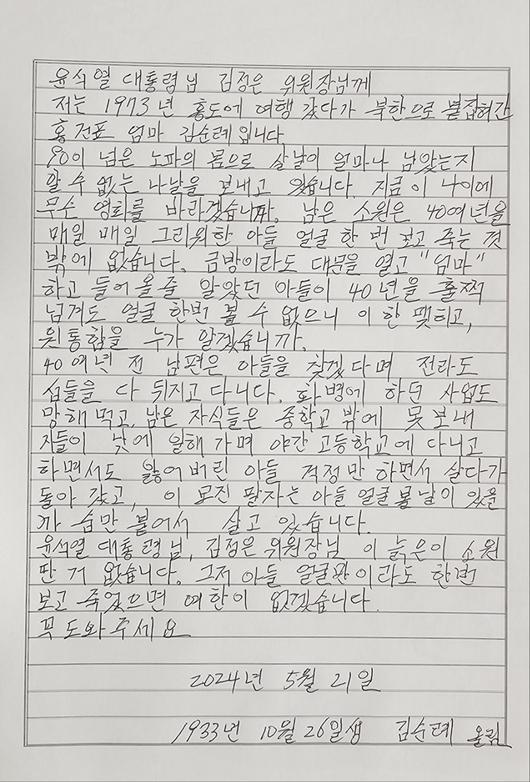 윤석열 대통령님 김정은 위원장님께
저는 1973년 홍도에 여행 갔다가 북한으로 붙잡혀간
홍건표 엄마 김순례입니다
90이 넘은 노파의 몸으로 살날이 얼마나 남았는지
알 수 없는 나날을 보내고 있습니다. 지금 이 나이에
무슨 영화를 바라겠습니까. 남은 소원은 40여년을
매일 매일 그리워한 아들 얼굴 한 번 보고 죽는 것
밖에 없습니다. 금방이라도 대문을 열고 "엄마"
하고 들어올줄 알았던 아들이 40년을 훌쩍
넘겨도 얼굴 한번 볼 수 없으니 이 한 맺히고,
원통함을 누가 알겠습니까.
40여년 전 남편은 아들을 찾겠다며 전라도
섬들을 다 뒤지고 다니다. 화병에 하던 사업도
망해먹고, 남은 자식들은 중학교 밖에 못보내
자들이 낮에 일해 가며 야간 고등학교에 다니고
하면서도 잃어버린 아들 걱정만 하면서 살다가
돌아 갔고, 이 모진 팔자는 아들 얼굴 볼 날이 있을
까 숨만 붙어서 살고 있습니다.
윤석열 대통령님, 김정은 위원장님 이 늙은이 소원
딴 거 없습니다. 그저 아들 얼굴 이라도 한번
보고 죽었으면 여한이 없겠습니다.
꼭 도와주세요
2024년 5월 21일
1933년 10월 26일생 김순례 올림